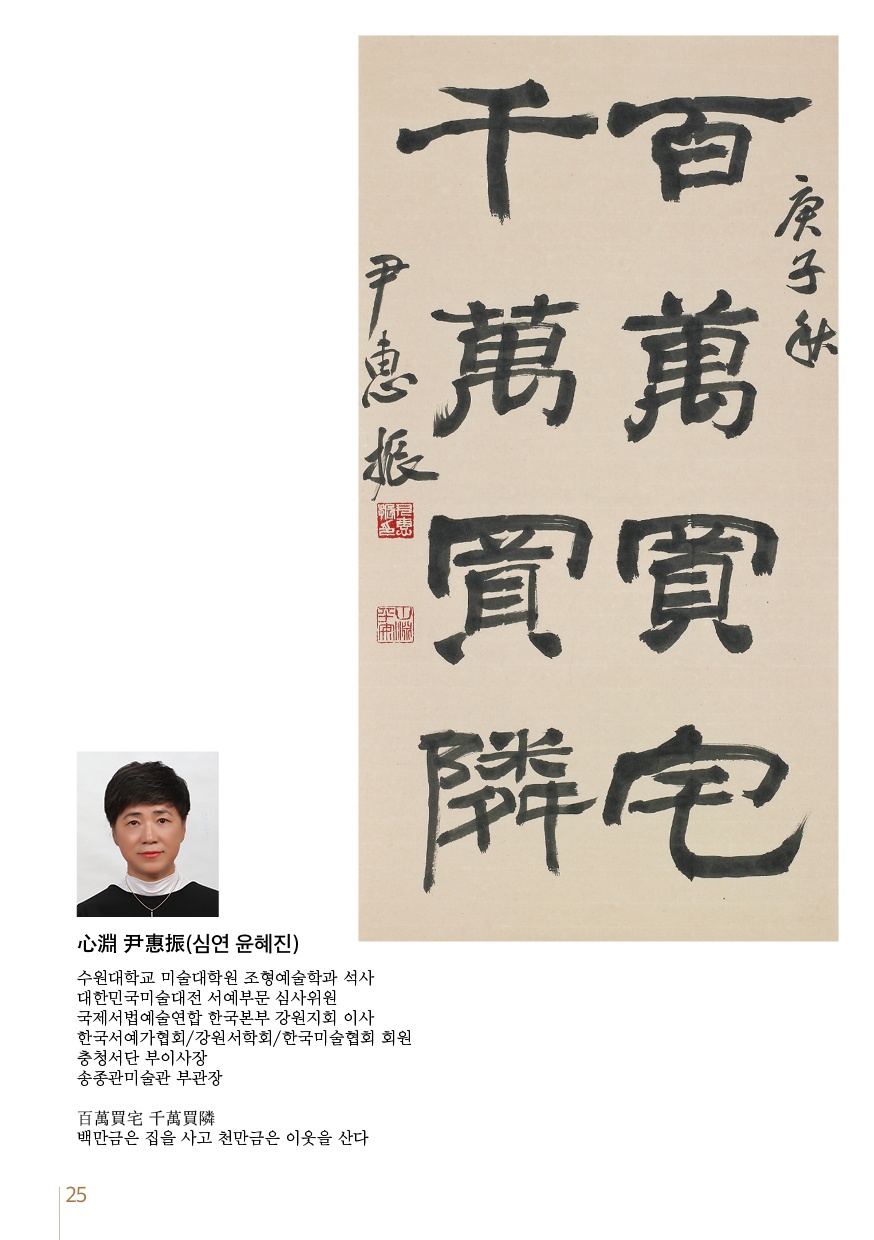 庚子秋
百萬買宅
千萬買隣
尹惠振
心淵 尹惠振(심연 윤혜진)
수원대학교 미술대학원 조형예술학과 석사
대한민국미술대전 서예부문 심사위원
국제서법예술연합 한국본부 강원지회 이사
한국서예가협회/강원서학회/한국미술협회 회원
충청서단 부이사장
송종관미술관 부관장
百萬買宅 千萬買隣
백만금은 집을 사고 천만금은 이웃을 산다
25